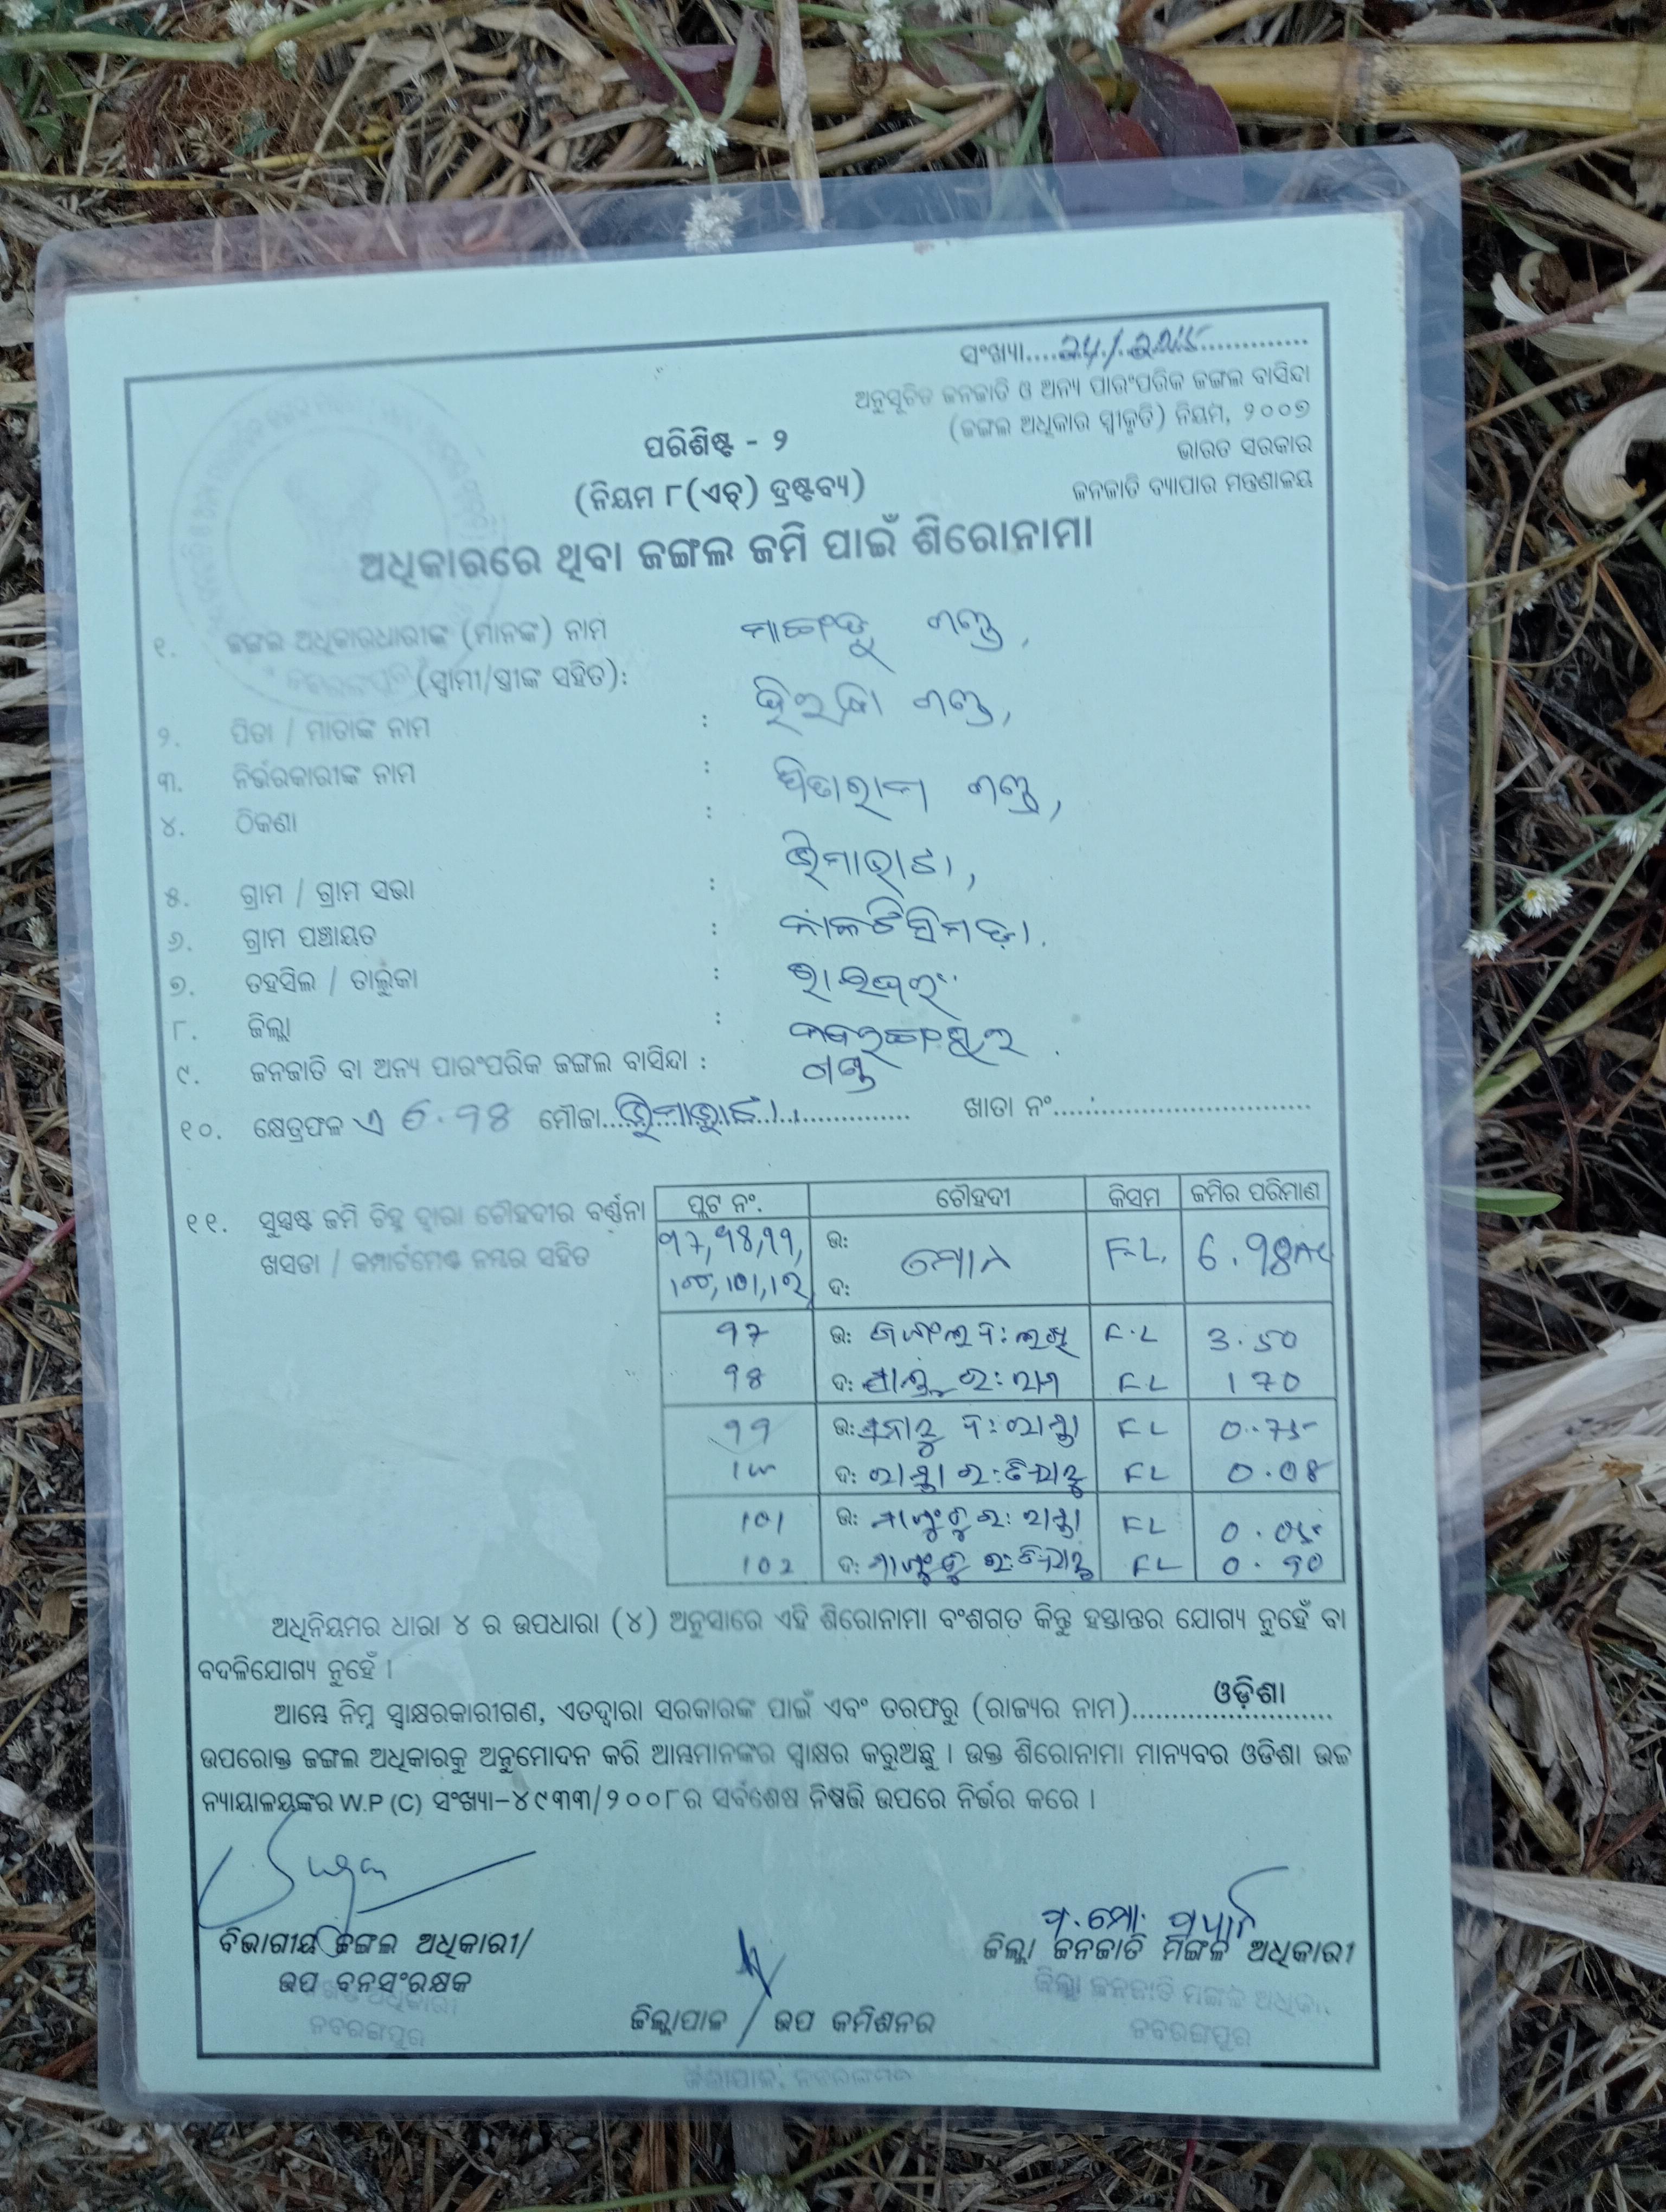 ସଂଖ୍ୟା....24/
ଅନୁସୂଚିତ ଜନଜାତି ଓ ଅନ୍ୟ ପାରଂପରିକ ଜଙ୍ଗଲ ବାସିନ୍ଦା
(ଜଙ୍ଗଲ ଅଧିକାର ସ୍ୱୀକୃତି) ନିୟମ, ୨୦୦୭
ଭାରତ ସରକାର
ଜନଜାତି ବ୍ୟାପାର ମନ୍ତ୍ରଣାଳୟ
ପରିଶିଷ୍ଟ - ୨
(ନିୟମ ୮(ଏଚ୍) ଦ୍ରଷ୍ଟବ୍ୟ)
ଅଧିକାରରେ ଥିବା ଜଙ୍ଗଲ ଜମି ପାଇଁ ଶିରୋନାମା
୧. ଜଙ୍ଗଲ ଅଧିକାରଧାରୀଙ୍କ (ମାନଙ୍କ) ନାମ ଗଣ୍ଡ,
(ସ୍ୱାମୀ/ସ୍ତ୍ରୀଙ୍କ ସହିତ):
୨. ପିତା / ମାତାଙ୍କ ନାମ : ଗଣ୍ଡ,
୩. ନିର୍ଭରକାରୀଙ୍କ ନାମ : ସିତାରାମ ଗଣ୍ଡ,
୪. ଠିକଣା :
୫. ଗ୍ରାମ / ଗ୍ରାମ ସଭା :
୬. ଗ୍ରାମ ପଞ୍ଚାୟତ :
୭. ତହସିଲ / ତାଲୁକା : ରାଇଘର
୮. ଜିଲ୍ଲା : ନବରଙ୍ଗପୁର
୯. ଜନଜାତି ବା ଅନ୍ୟ ପାରଂପରିକ ଜଙ୍ଗଲ ବାସିନ୍ଦା : ଗଣ୍ଡ
୧୦. କ୍ଷେତ୍ରଫଳ ଏ 6.98 ମୌଜା.................. ଖାତା ନଂ..............................
୧୧. ସୁସ୍ପଷ୍ଟ ଜମି ଚିହ୍ନ ଦ୍ୱାରା ଚୌହଦୀର ବର୍ଣ୍ଣନା
ଖସଡା / କମ୍ପାର୍ଟମେଣ୍ଟ ନମ୍ବର ସହିତ
ପ୍ଲଟ ନଂ. ଚୌହଦୀ କିସମ ଜମିର ପରିମାଣ
97, 98, 99, ଉ: F.L. 6.98 Ac
100, 101, 102 ଦ: ମୋଟ
97 ଉ: F.L 3.50
98 ଦ: FL 1 70
99 ଉ: FL 0.75
100 ଦ: FL 0.08
101 ଉ: FL 0.05
102 ଦ: FL 0.90
ଅଧିନିୟମର ଧାରା ୪ ର ଉପଧାରା (୪) ଅନୁସାରେ ଏହି ଶିରୋନାମା ବଂଶଗତ କିନ୍ତୁ ହସ୍ତାନ୍ତର ଯୋଗ୍ୟ ନୁହେଁ ବା
ବଦଳିଯୋଗ୍ୟ ନୁହେଁ ।
ଆମ୍ଭେ ନିମ୍ନ ସ୍ୱାକ୍ଷରକାରୀଗଣ, ଏତଦ୍ୱାରା ସରକାରଙ୍କ ପାଇଁ ଏବଂ ତରଫରୁ (ରାଜ୍ୟର ନାମ)....ଓଡ଼ିଶା....
ଉପରୋକ୍ତ ଜଙ୍ଗଲ ଅଧିକାରକୁ ଅନୁମୋଦନ କରି ଆମ୍ଭମାନଙ୍କର ସ୍ୱାକ୍ଷର କରୁଅଛୁ । ଉକ୍ତ ଶିରୋନାମା ମାନ୍ୟବର ଓଡିଶା ଉଚ୍ଚ
ନ୍ୟାୟାଳୟଙ୍କର W.P (C) ସଂଖ୍ୟା-୪୯୩୩/୨୦୦୮ର ସର୍ବଶେଷ ନିଷ୍ପତ୍ତି ଉପରେ ନିର୍ଭର କରେ ।
ବିଭାଗୀୟ ଜଙ୍ଗଲ ଅଧିକାରୀ/
ଉପ ବନସଂରକ୍ଷକ
ନବରଙ୍ଗପୁର
ଜିଲ୍ଲାପାଳ / ଉପ କମିଶନର
ଜିଲ୍ଲା ଜନଜାତି ମଙ୍ଗଳ ଅଧିକାରୀ
ଜିଲ୍ଲା ଜନଜାତି ମଙ୍ଗଳ ଅଧିକାରୀ
ନବରଙ୍ଗପୁର
ଜିଲ୍ଲାପାଳ, ନବରଙ୍ଗପୁର